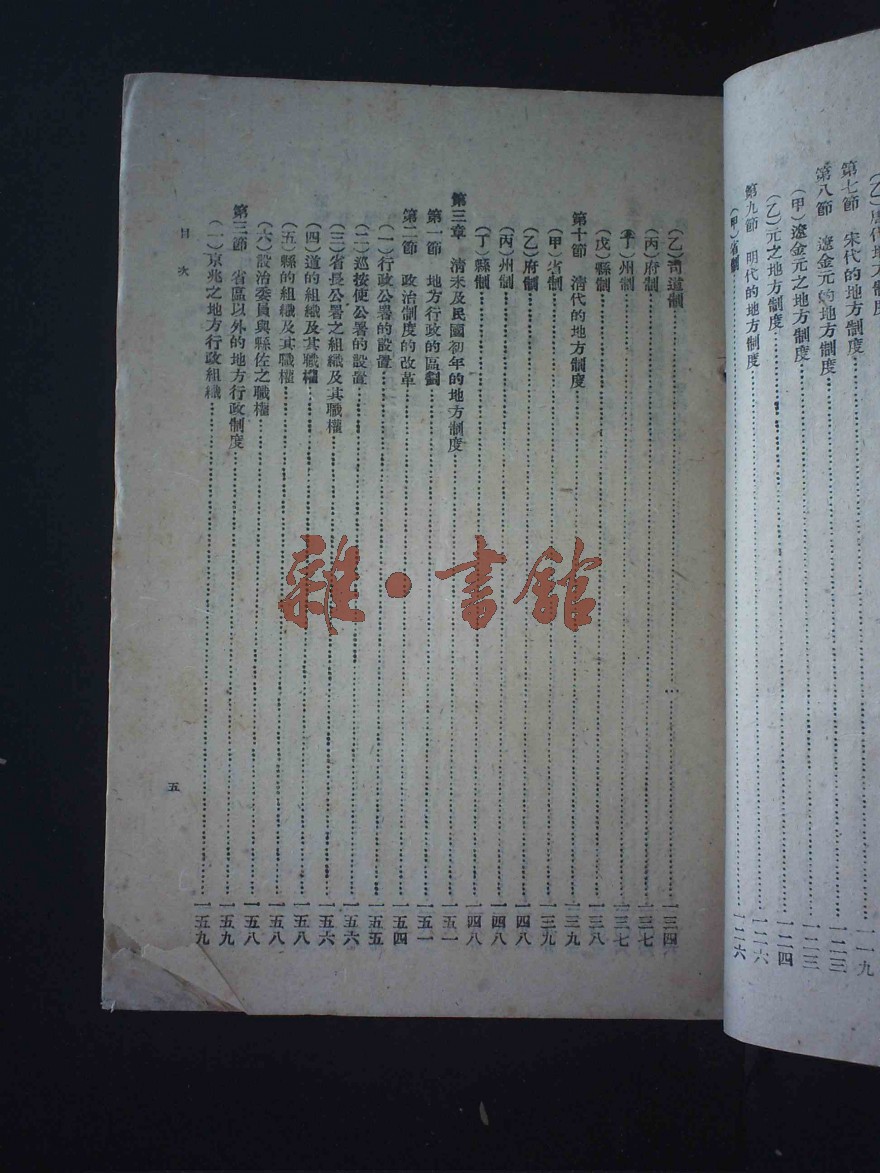 第七節 宋代的地方制度……一一九
第八節 遼金元的地方制度……一二三
(甲)遼金元之地方制度……一二三
(乙)元之地方制度……一二四
第九節 明代的地方制度……一二六
(甲)省制……一二六
(乙)司道制……一三四
(丙)府制……一三七
(丁)州制……一三七
(戊)縣制……一三八
第十節 清代的地方制度……一三九
(甲)省制……一三九
(乙)府制……一四八
(丙)州制……一四八
(丁)縣制……一四八
第三章 清末及民國初年的地方制度……一五一
第一節 地方行政的區劃……一五一
第二節 政治制度的改革……一五四
(一)行政公署的設置……一五五
(二)巡按使公署的設置……一五六
(三)省長公署之組織及其職權……一五六
(四)道的組織及其職權……一五八
(五)縣的組織及其職權……一五八
(六)設治委員與縣佐之職權……一五八
第三節 省區以外的地方行政制度……一五九
(一)京兆之地方行政組織……一五九
目次
五
雜·書館